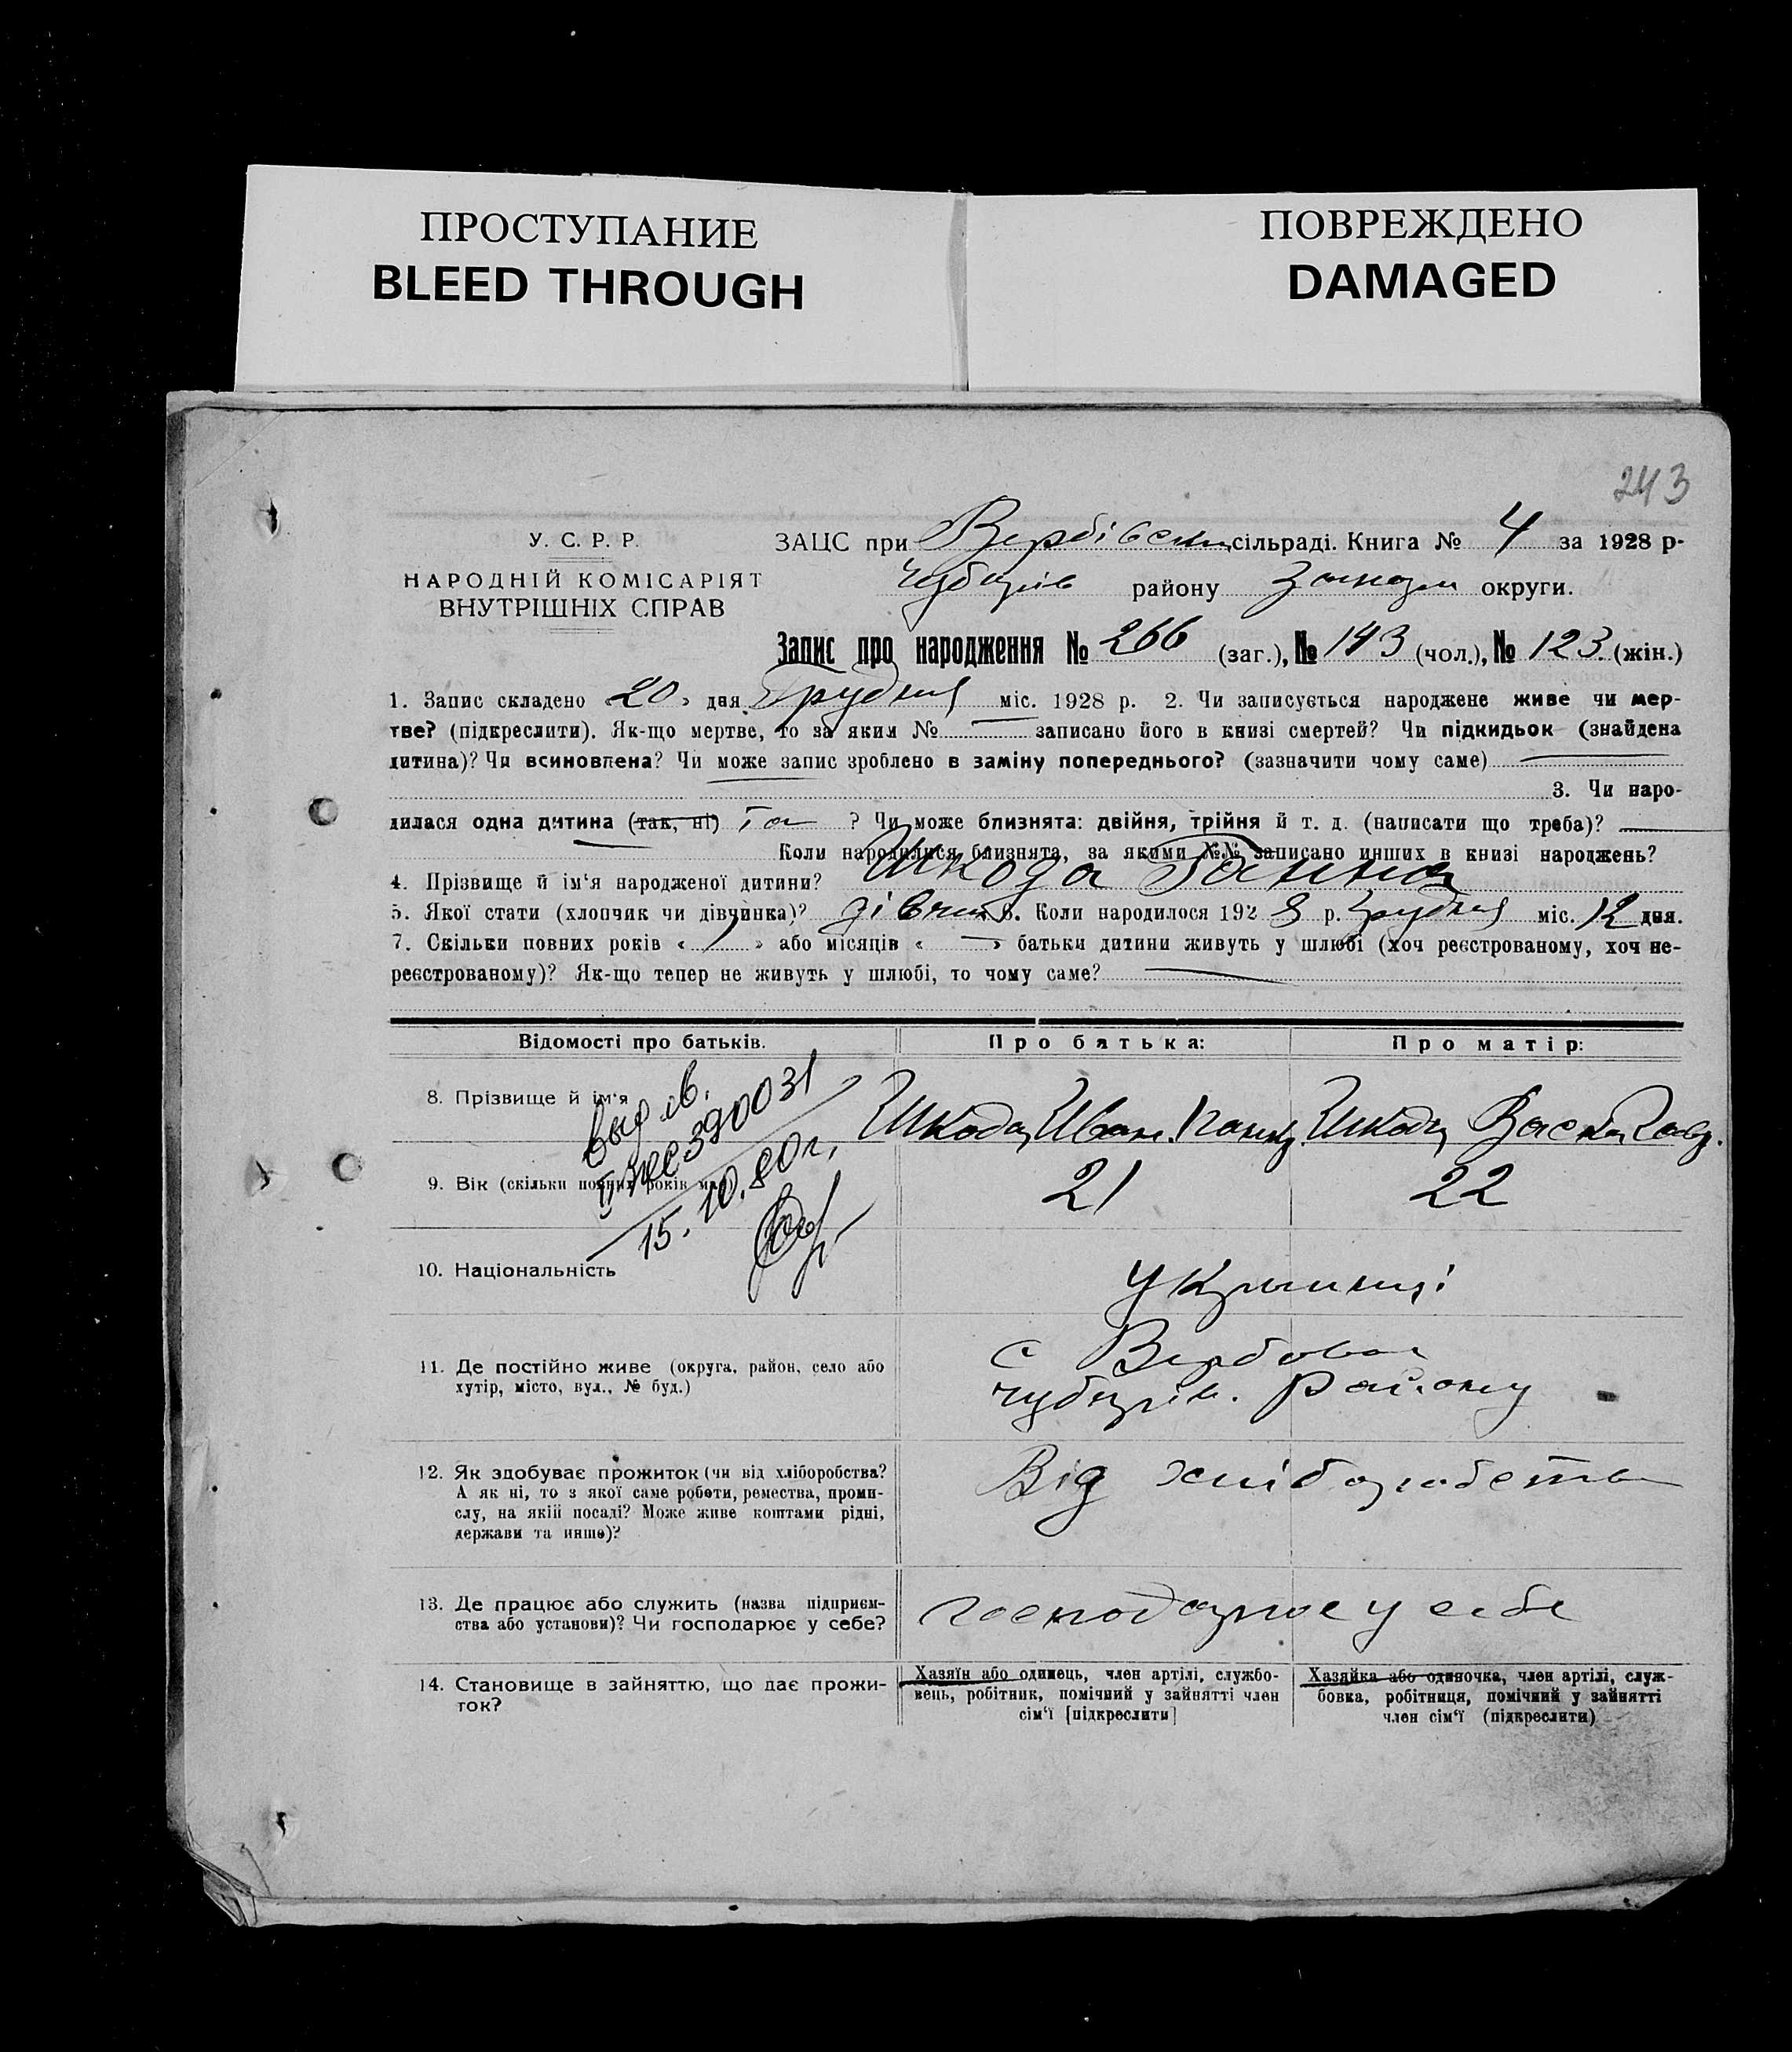 ПРОСТУПАНИЕ
BLEED THROUGH
ПОВРЕЖДЕНО
DAMAGED
243
У. С. Р. Р.
НАРОДНІЙ КОМІСАРІЯТ
ВНУТРІШНІХ СПРАВ
ЗАЦС при Вербівськ сільраді. Книга № 4 за 1928 р-
Чубарів району Запоріз округи.
Запис про народження № 266 (заг.), № 143 (чол.), № 123 (жін.)
1. Запис складено «20» дня Грудня міс. 1928 р. 2. Чи записується народжене живе чи мер-
тве? (підкреслити). Як-що мертве, то за яким № — записано його в книзі смертей? Чи підкидьок (знайдена
дитина)? Чи всиновлена? Чи може запис зроблено в заміну попереднього? (зазначити чому саме) —
3. Чи наро-
дилася одна дитина (так, ні) Так ? Чи може близнята: двійня, трійня й т. д. (написати що треба)? —
Коли народилися близнята, за якими №№ записано инших в книзі народжень?
4. Прізвище й ім‘я народженої дитини? Шкода Ганна
5. Якої стати (хлопчик чи дівчинка)? дівчин 6. Коли народилося 1928 р. Грудня міс. 12 дня.
7. Скільки повних років « 1 » або місяців « — » батьки дитини живуть у шлюбі (хоч реєстрованому, хоч не-
реєстрованому)? Як-що тепер не живуть у шлюбі, то чому саме? —
Відомості про батьків.
Про батька:
Про матір:
8. Прізвище й ім‘я
Шкода Иван
Шкода
9. Вік (скільки повних років має)
21
22
15.10.80г.
10. Національність
Українці
11. Де постійно живе (округа, район, село або
хутір, місто, вул., № буд.)
с Вербова
Чубарів. Району
12. Як здобуває прожиток (чи від хліборобства?
А як ні, то з якої саме роботи, ремества, проми-
слу, на якій посаді? Може живе коштами рідні,
держави та инше)?
Від хліборобства
13. Де працює або служить (назва підприєм-
ства або установи)? Чи господарює у себе?
господарює у себе
14. Становище в зайняттю, що дає прожи-
ток?
Хазяїн або одинець, член артілі, службо-
вець, робітник, помічний у зайнятті член
сім‘ї [підкреслити]
Хазяйка або одиночка, член артілі, служ-
бовка, робітниця, помічний у зайнятті
член сім‘ї (підкреслити)